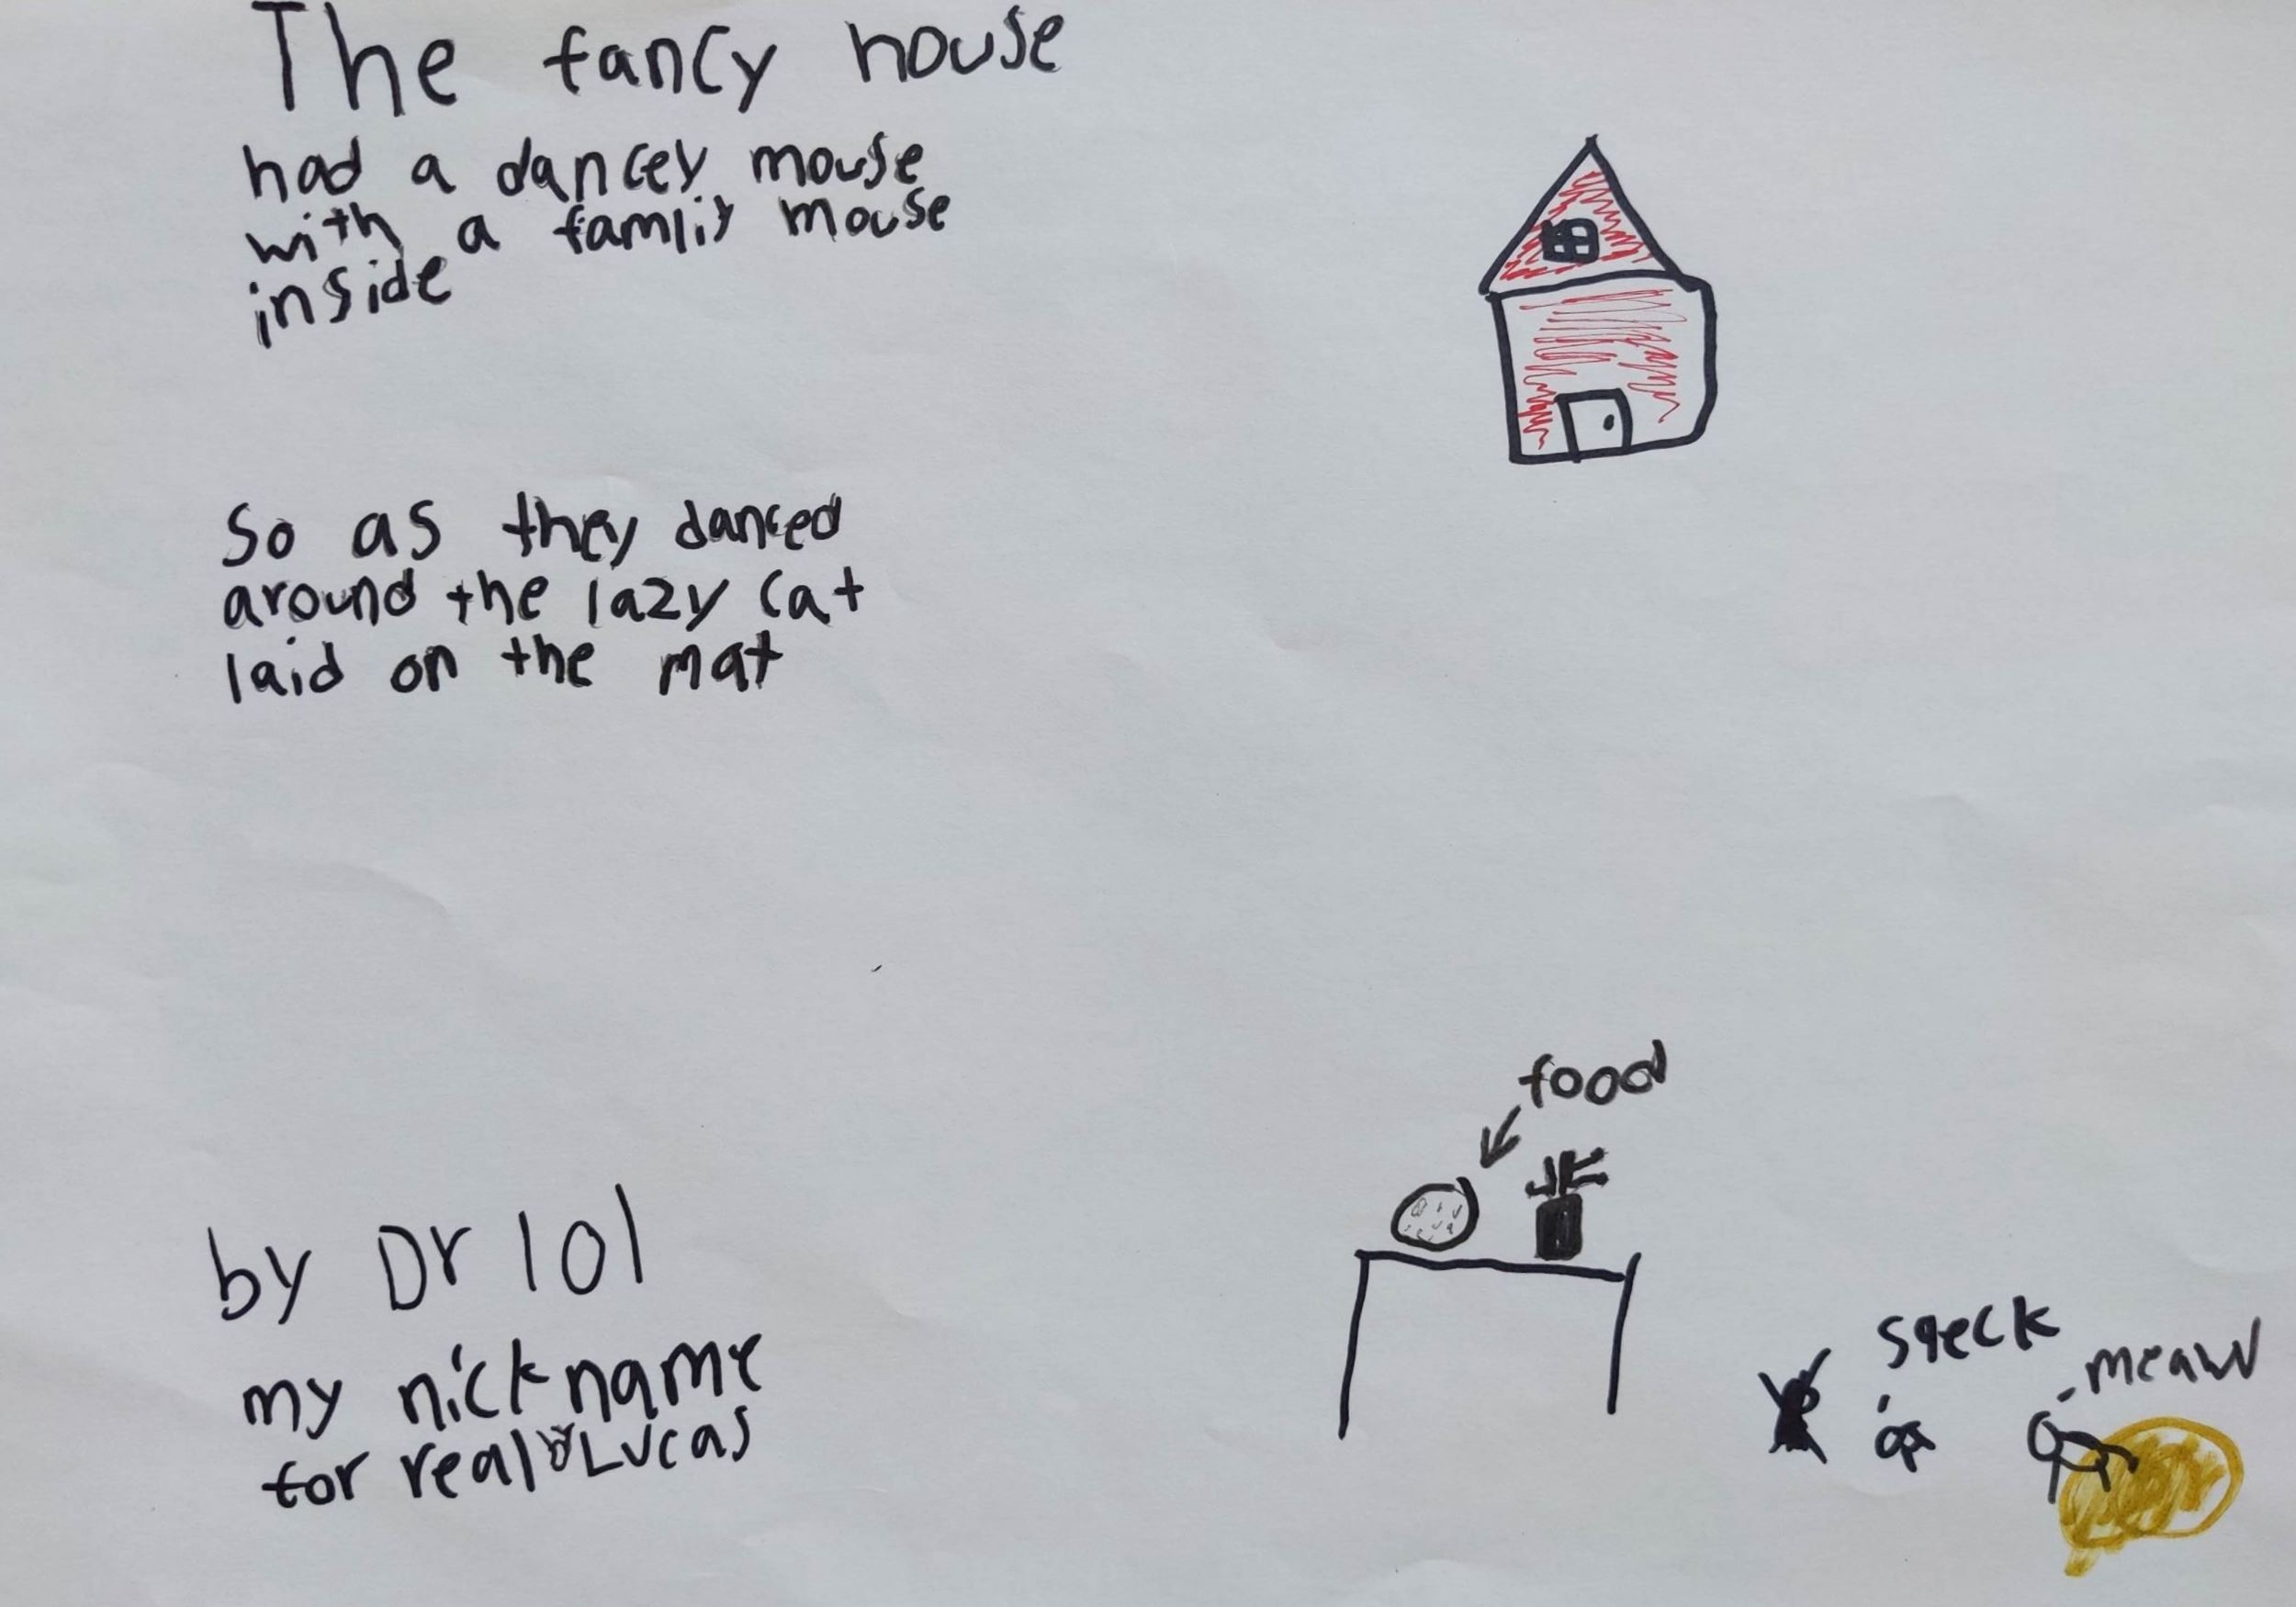 The fancy house
had a dancey mouse
with a famliy mouse
inside
So as they danced
around the lazy cat
laid on the mat
food
by Dr lol
sqeck
meaw
my nickname
for real Lucas